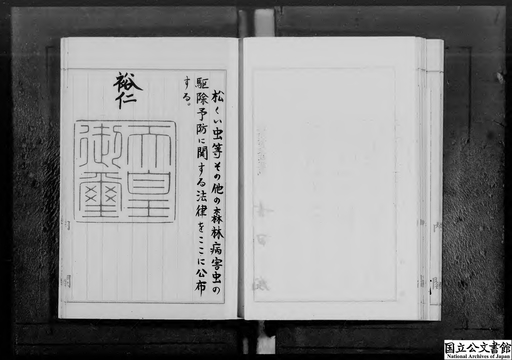 松くい虫等その他の森林病害虫の
駆除予防に関する法律をここに公布
する。
裕仁
天皇
御璽
国立公文書館
National Archives of Japan